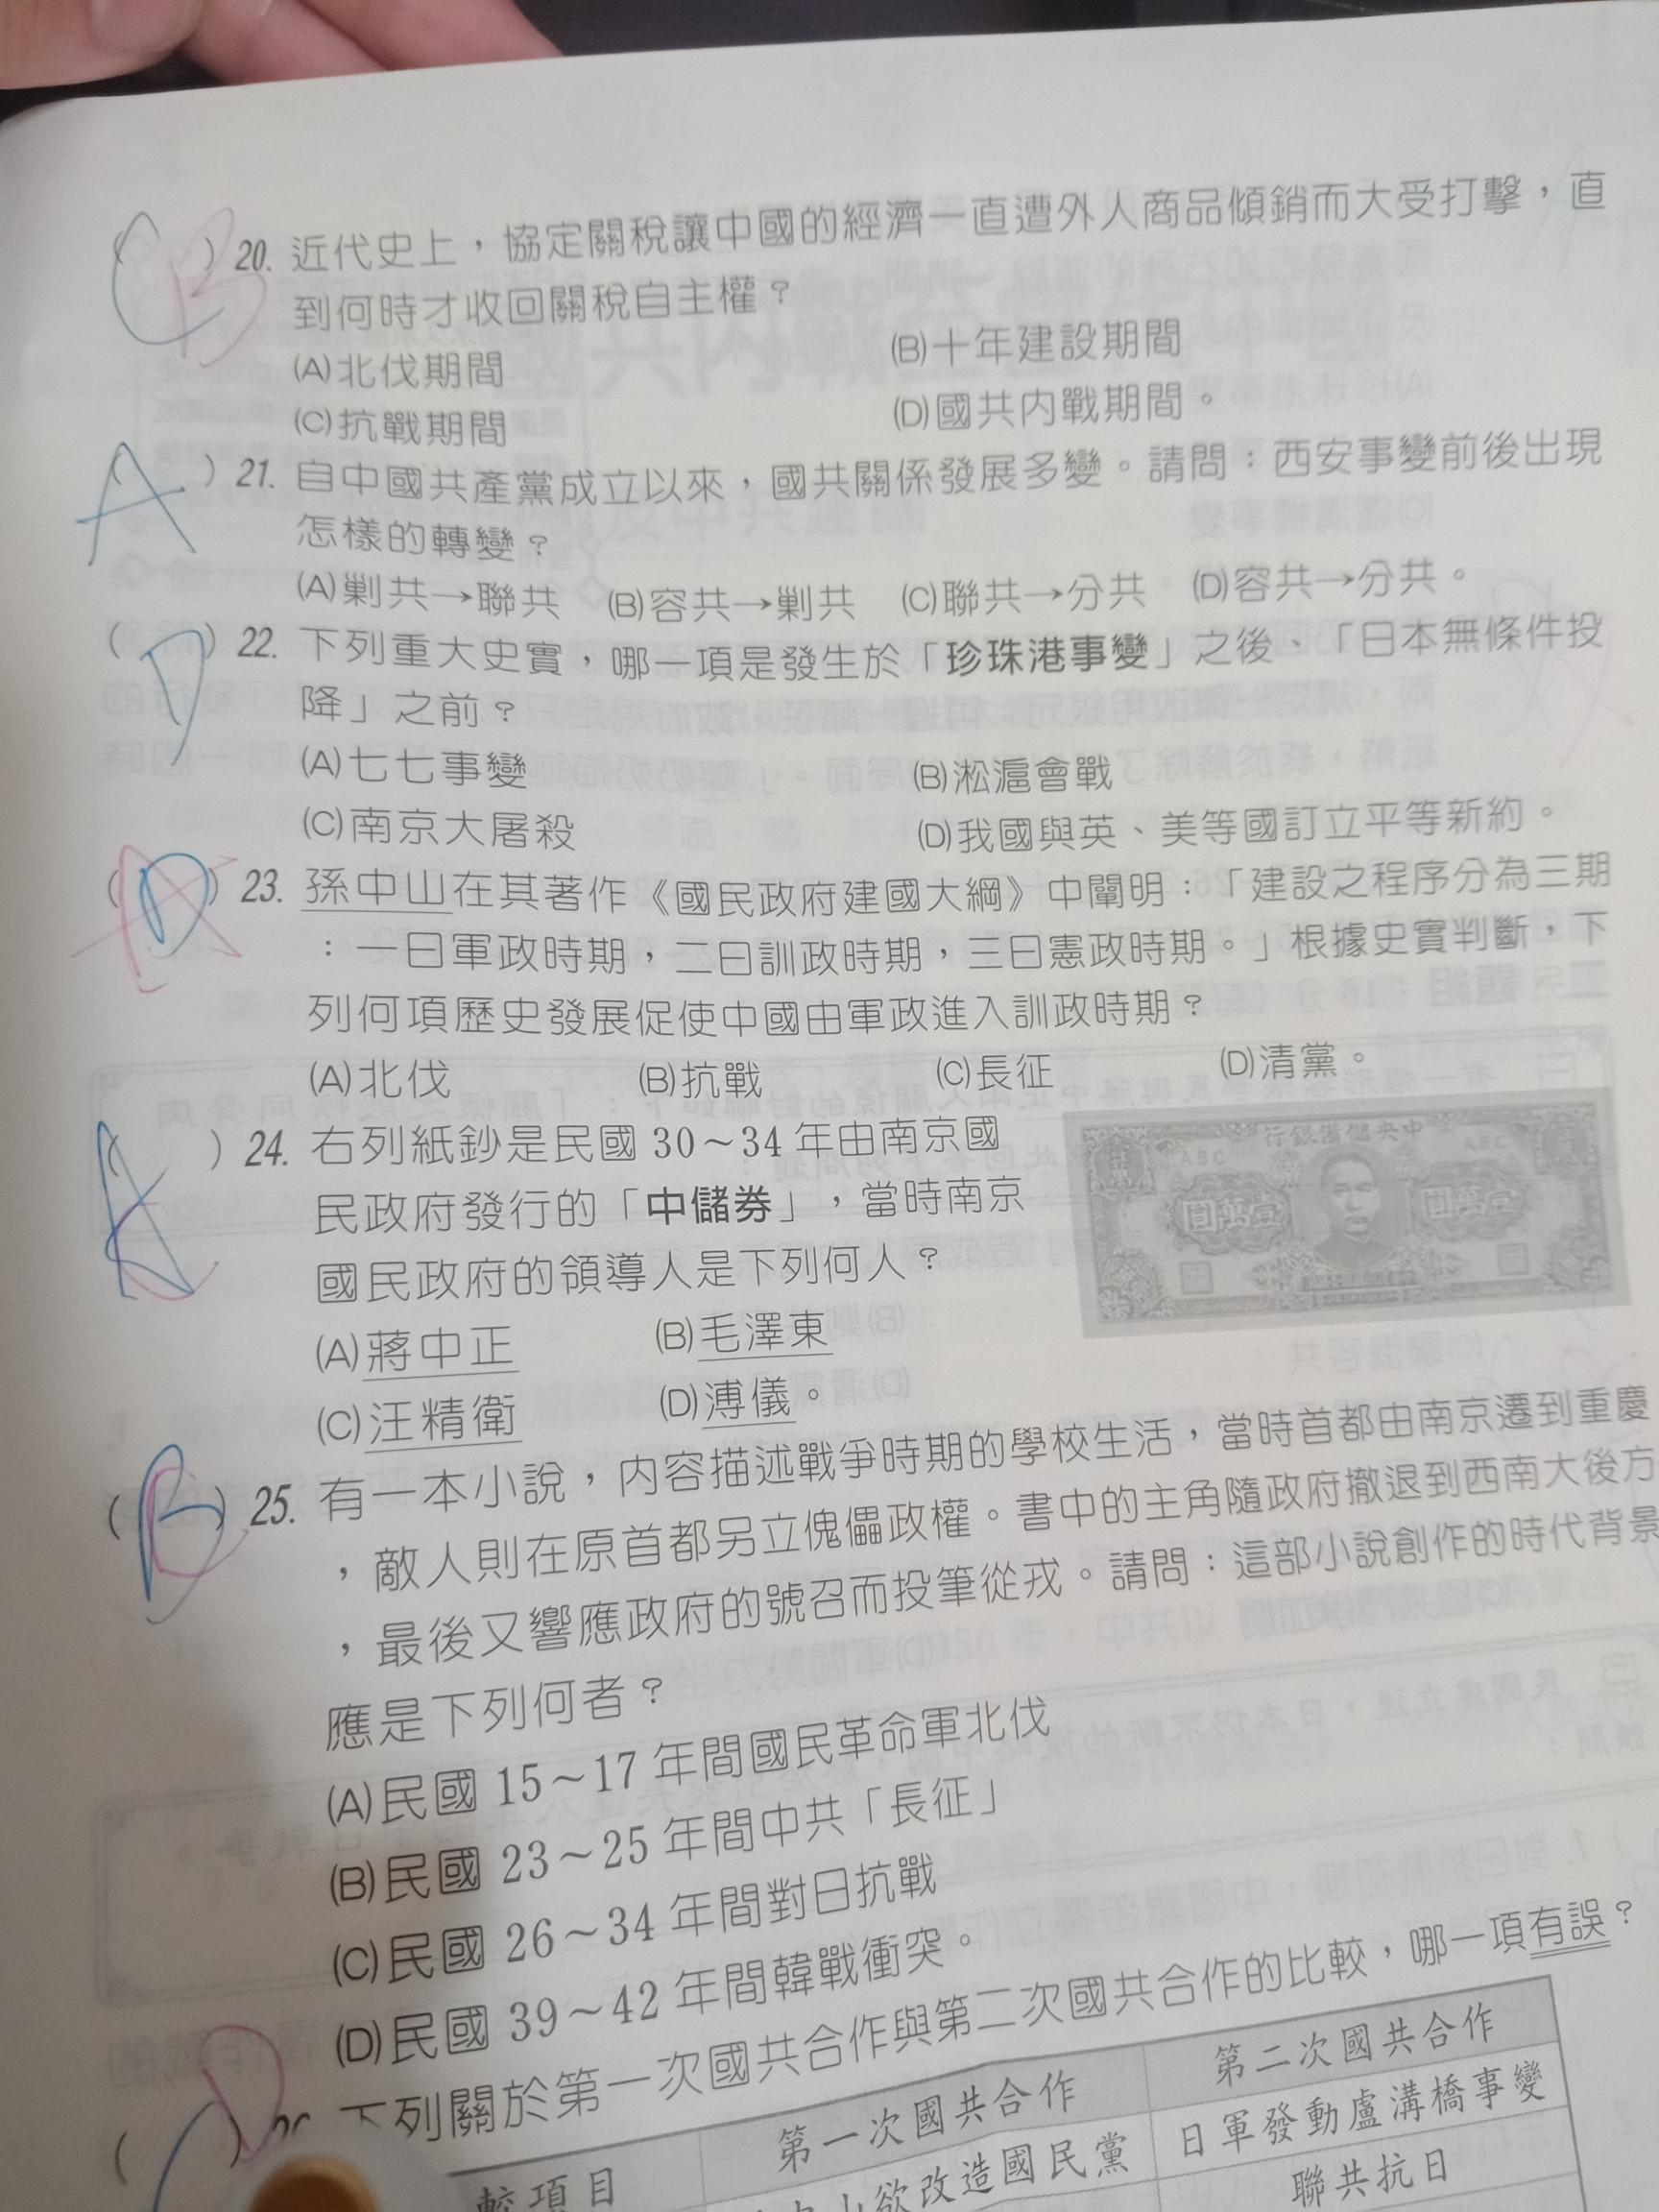 C B ( ) 20. 近代史上，協定關稅讓中國的經濟一直遭外人商品傾銷而大受打擊，直
到何時才收回關稅自主權？
(A)北伐期間 (B)十年建設期間
(C)抗戰期間 (D)國共內戰期間。
A ( ) 21. 自中國共產黨成立以來，國共關係發展多變。請問：西安事變前後出現
怎樣的轉變？
(A)剿共→聯共 (B)容共→剿共 (C)聯共→分共 (D)容共→分共。
( D ) 22. 下列重大史實，哪一項是發生於「珍珠港事變」之後、「日本無條件投
降」之前？
(A)七七事變 (B)淞滬會戰
(C)南京大屠殺 (D)我國與英、美等國訂立平等新約。
( D A ) 23. 孫中山在其著作《國民政府建國大綱》中闡明：「建設之程序分為三期
：一曰軍政時期，二曰訓政時期，三曰憲政時期。」根據史實判斷，下
列何項歷史發展促使中國由軍政進入訓政時期？
(A)北伐 (B)抗戰 (C)長征 (D)清黨。
A C ( ) 24. 右列紙鈔是民國 30～34 年由南京國
民政府發行的「中儲券」，當時南京
國民政府的領導人是下列何人？
(A)蔣中正 (B)毛澤東
(C)汪精衛 (D)溥儀。
行銀備儲央中
ABC ABC
圓萬壹 圓萬壹
( ) 25. 有一本小說，內容描述戰爭時期的學校生活，當時首都由南京遷到重慶
，敵人則在原首都另立傀儡政權。書中的主角隨政府撤退到西南大後方
，最後又響應政府的號召而投筆從戎。請問：這部小說創作的時代背景
應是下列何者？
(A)民國 15～17 年間國民革命軍北伐
(B)民國 23～25 年間中共「長征」
(C)民國 26～34 年間對日抗戰
(D)民國 39～42 年間韓戰衝突。
( D ) 下列關於第一次國共合作與第二次國共合作的比較，哪一項有誤？
較項目 第一次國共合作 第二次國共合作
山欲改造國民黨 日軍發動盧溝橋事變
聯共抗日